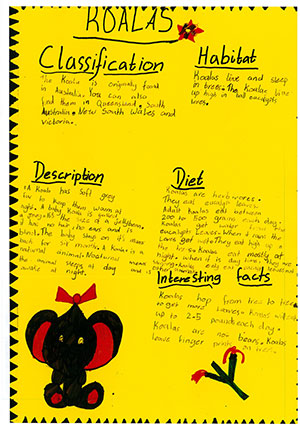 KOALAS
Classification
The Koala is originaly found
in Australia. You can also
find them in Queensland, South
Australia, New South Wales and
victoria.
Habitat
Koalas live and sleep
in trees. The Koalas live
up high in tall eucalypts
trees.
Description
A Koala has soft grey
fur to keep them warm at
night. A baby Koala is called
a joey. It's the size of a jellybean.
It has no hair, no ears and it's
blind. The baby stays on it's mums
back for six months. A Koala is a
nocturnal animal. Nocturnal means
the animal sleeps at day and is
awake at night.
Diet
Koalas are herbivores.
They eat eucalypt leaves.
Adult Koalas eat between
200 to 500 grams each day.
Koalas get water from the
eucalypts Leaves. When it rains the
Leaves get wet. They eat high up in
the trees. Koalas eat mostly at
night
Interesting facts
Koalas hop from tree to tree
to get more leaves. Koalas
up to 2-5 pounds each day.
Koalas are not bears. Koalas
leave finger prints on trees.